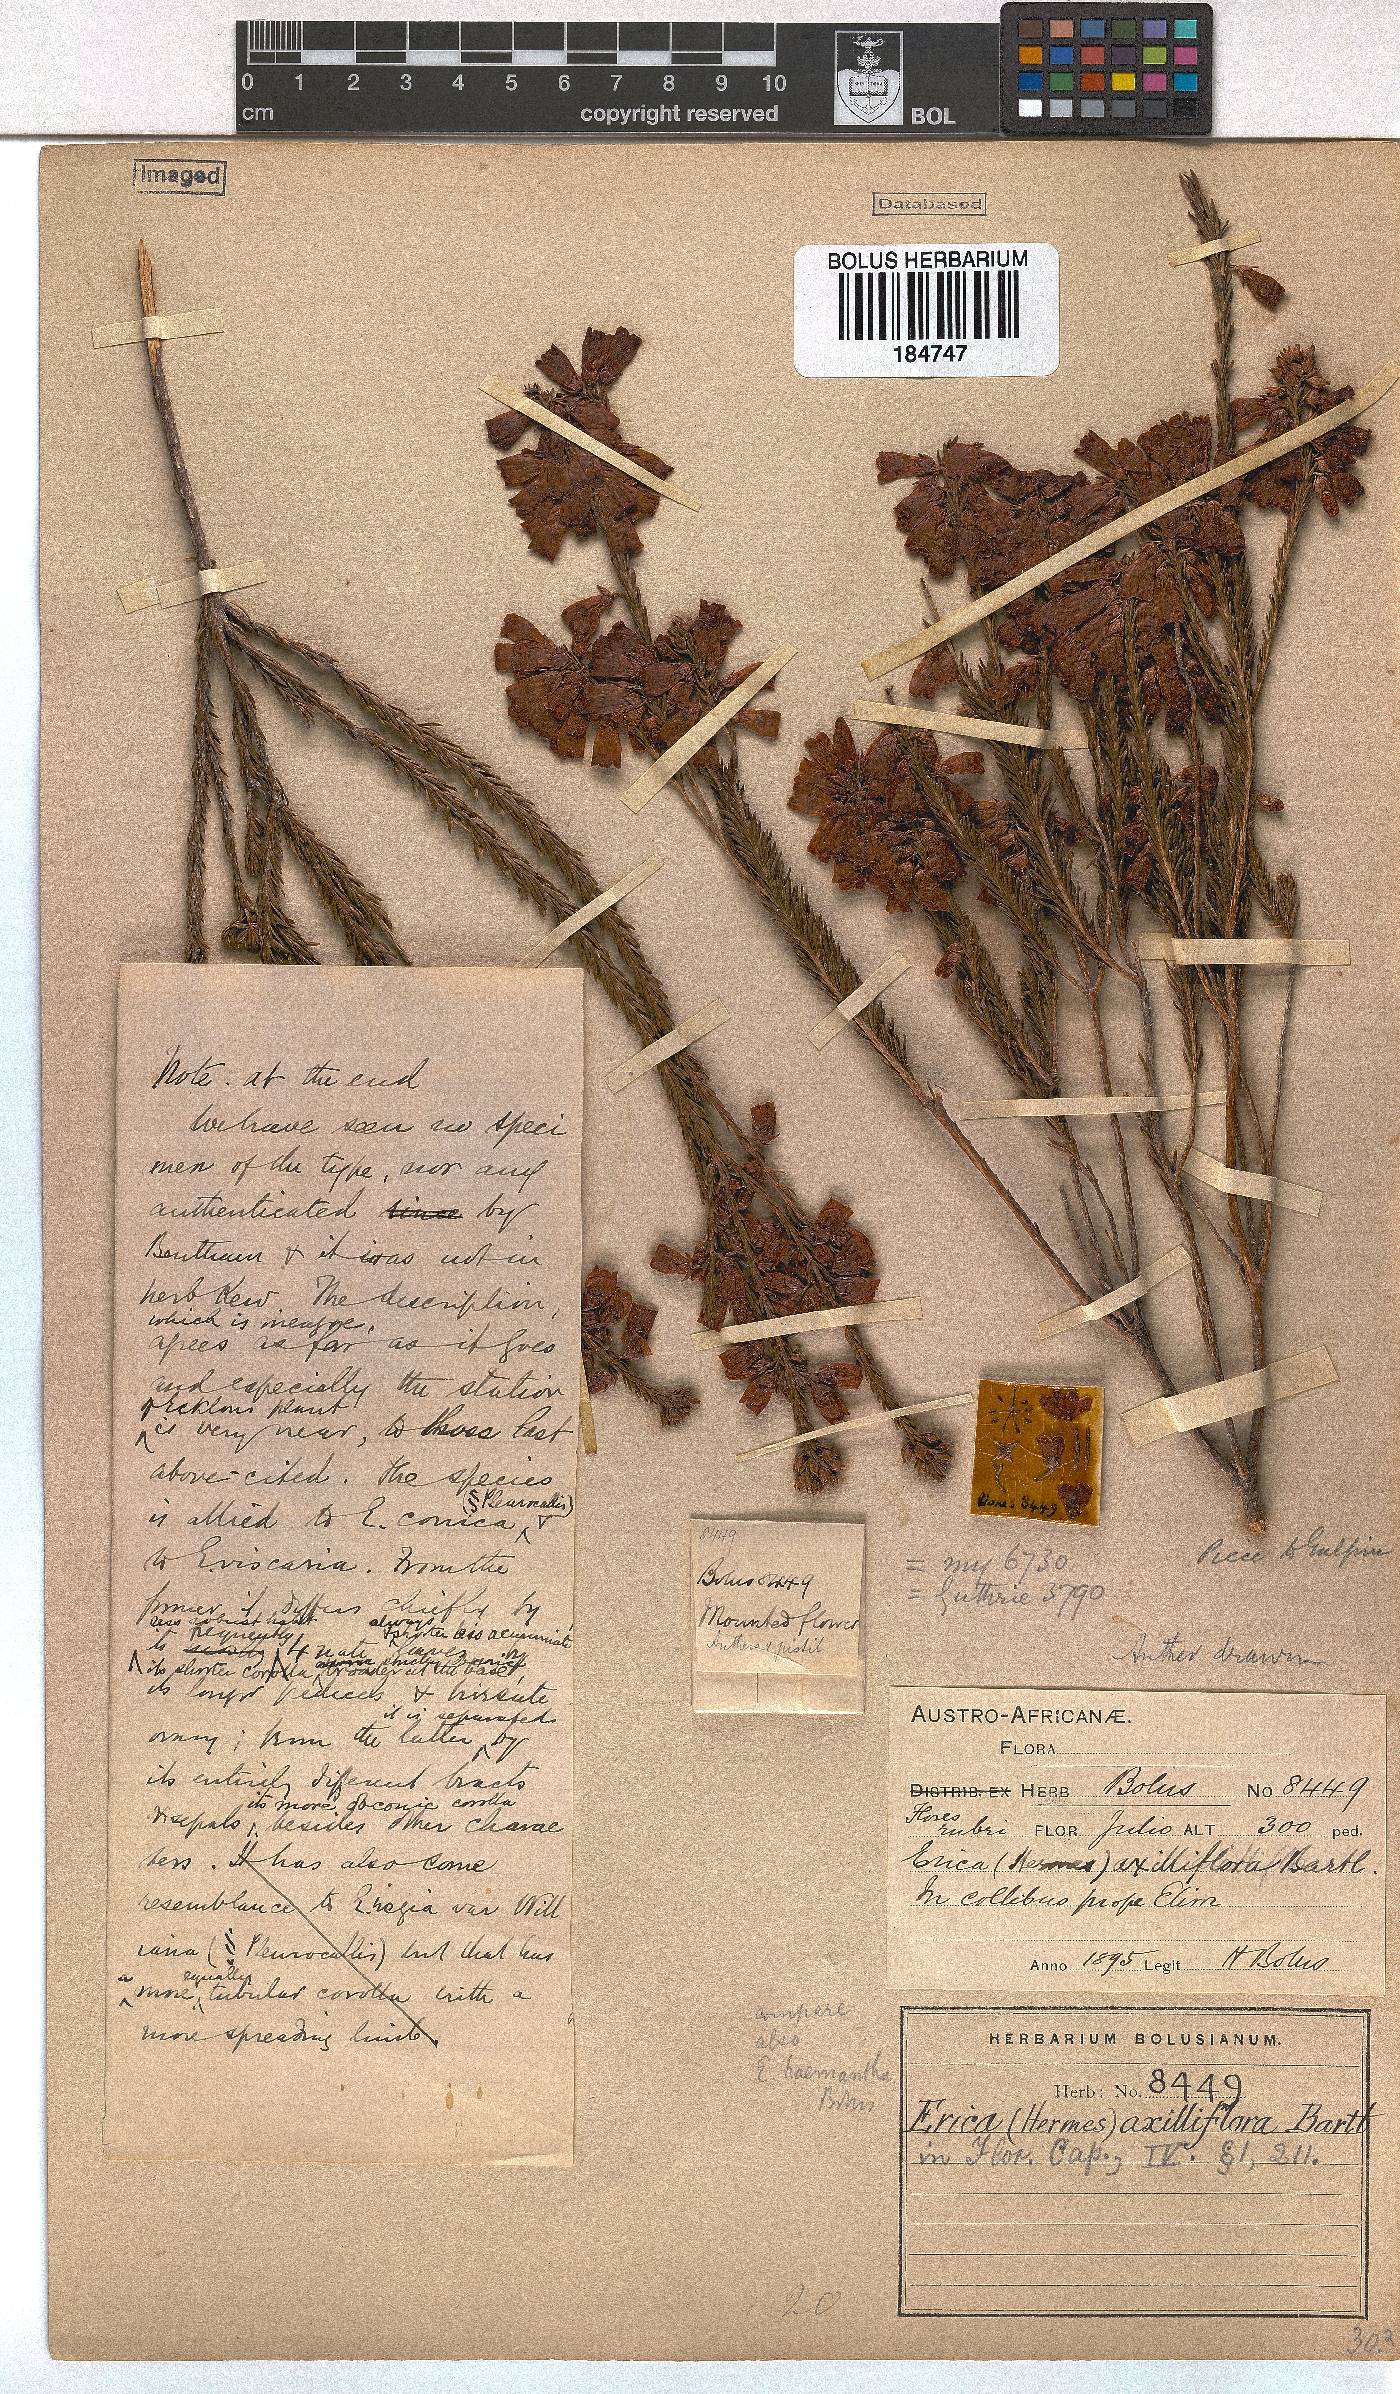 0 1 2 3 4 5 6 7 8 9 10
cm
copyright reserved
BOL
Imaged
Databased
BOLUS HERBARIUM
184747
Note. at the end
We have seen no speci
men of the type, nor any
authenticated since by
Bentham & it was not in
herb Kew. The description,
which is meagre,
agrees as far as it goes
and especially the station
of Ecklon's plant
is very near, to those last
above-cited. The species
(§ Pleurocallis)
is allied to E. conica, &
to E. viscaria. From the
former it differs chiefly by
less robust habit always
frequently shorter less acuminate
its 4 nate leaves by
its shorter corolla, broader at the base,
its longer pedicels & hirsute
it is separated
ovary; from the latter by
its entirely different bracts
its more obconic corolla
& sepals, besides other charac
ters. It has also some
resemblance to E. regia var Will
iana (§ Pleurocallis) but that has
a equally
more tubular corolla with a
more spreading limb.
Bolus 8449
8449
Bolus 8449
Mounted flower
Anthers & pistil
= my 6730
= Guthrie 3790
Piece to Galpin
Anther drawn
AUSTRO-AFRICANÆ.
FLORA
DISTRIB. EX HERB Bolus No 8449
Flores
rubri FLOR Julio ALT 300 ped.
Erica (Hermes) axilliflora Bartl.
In collibus prope Elim
Anno 1895 Legit H Bolus
compare
also
E. haemantha
Bolus
HERBARIUM BOLUSIANUM.
Herb: No. 8449
Erica (Hermes) axilliflora Bartl
in Flor. Cap., IV. §1, 211.
20
303